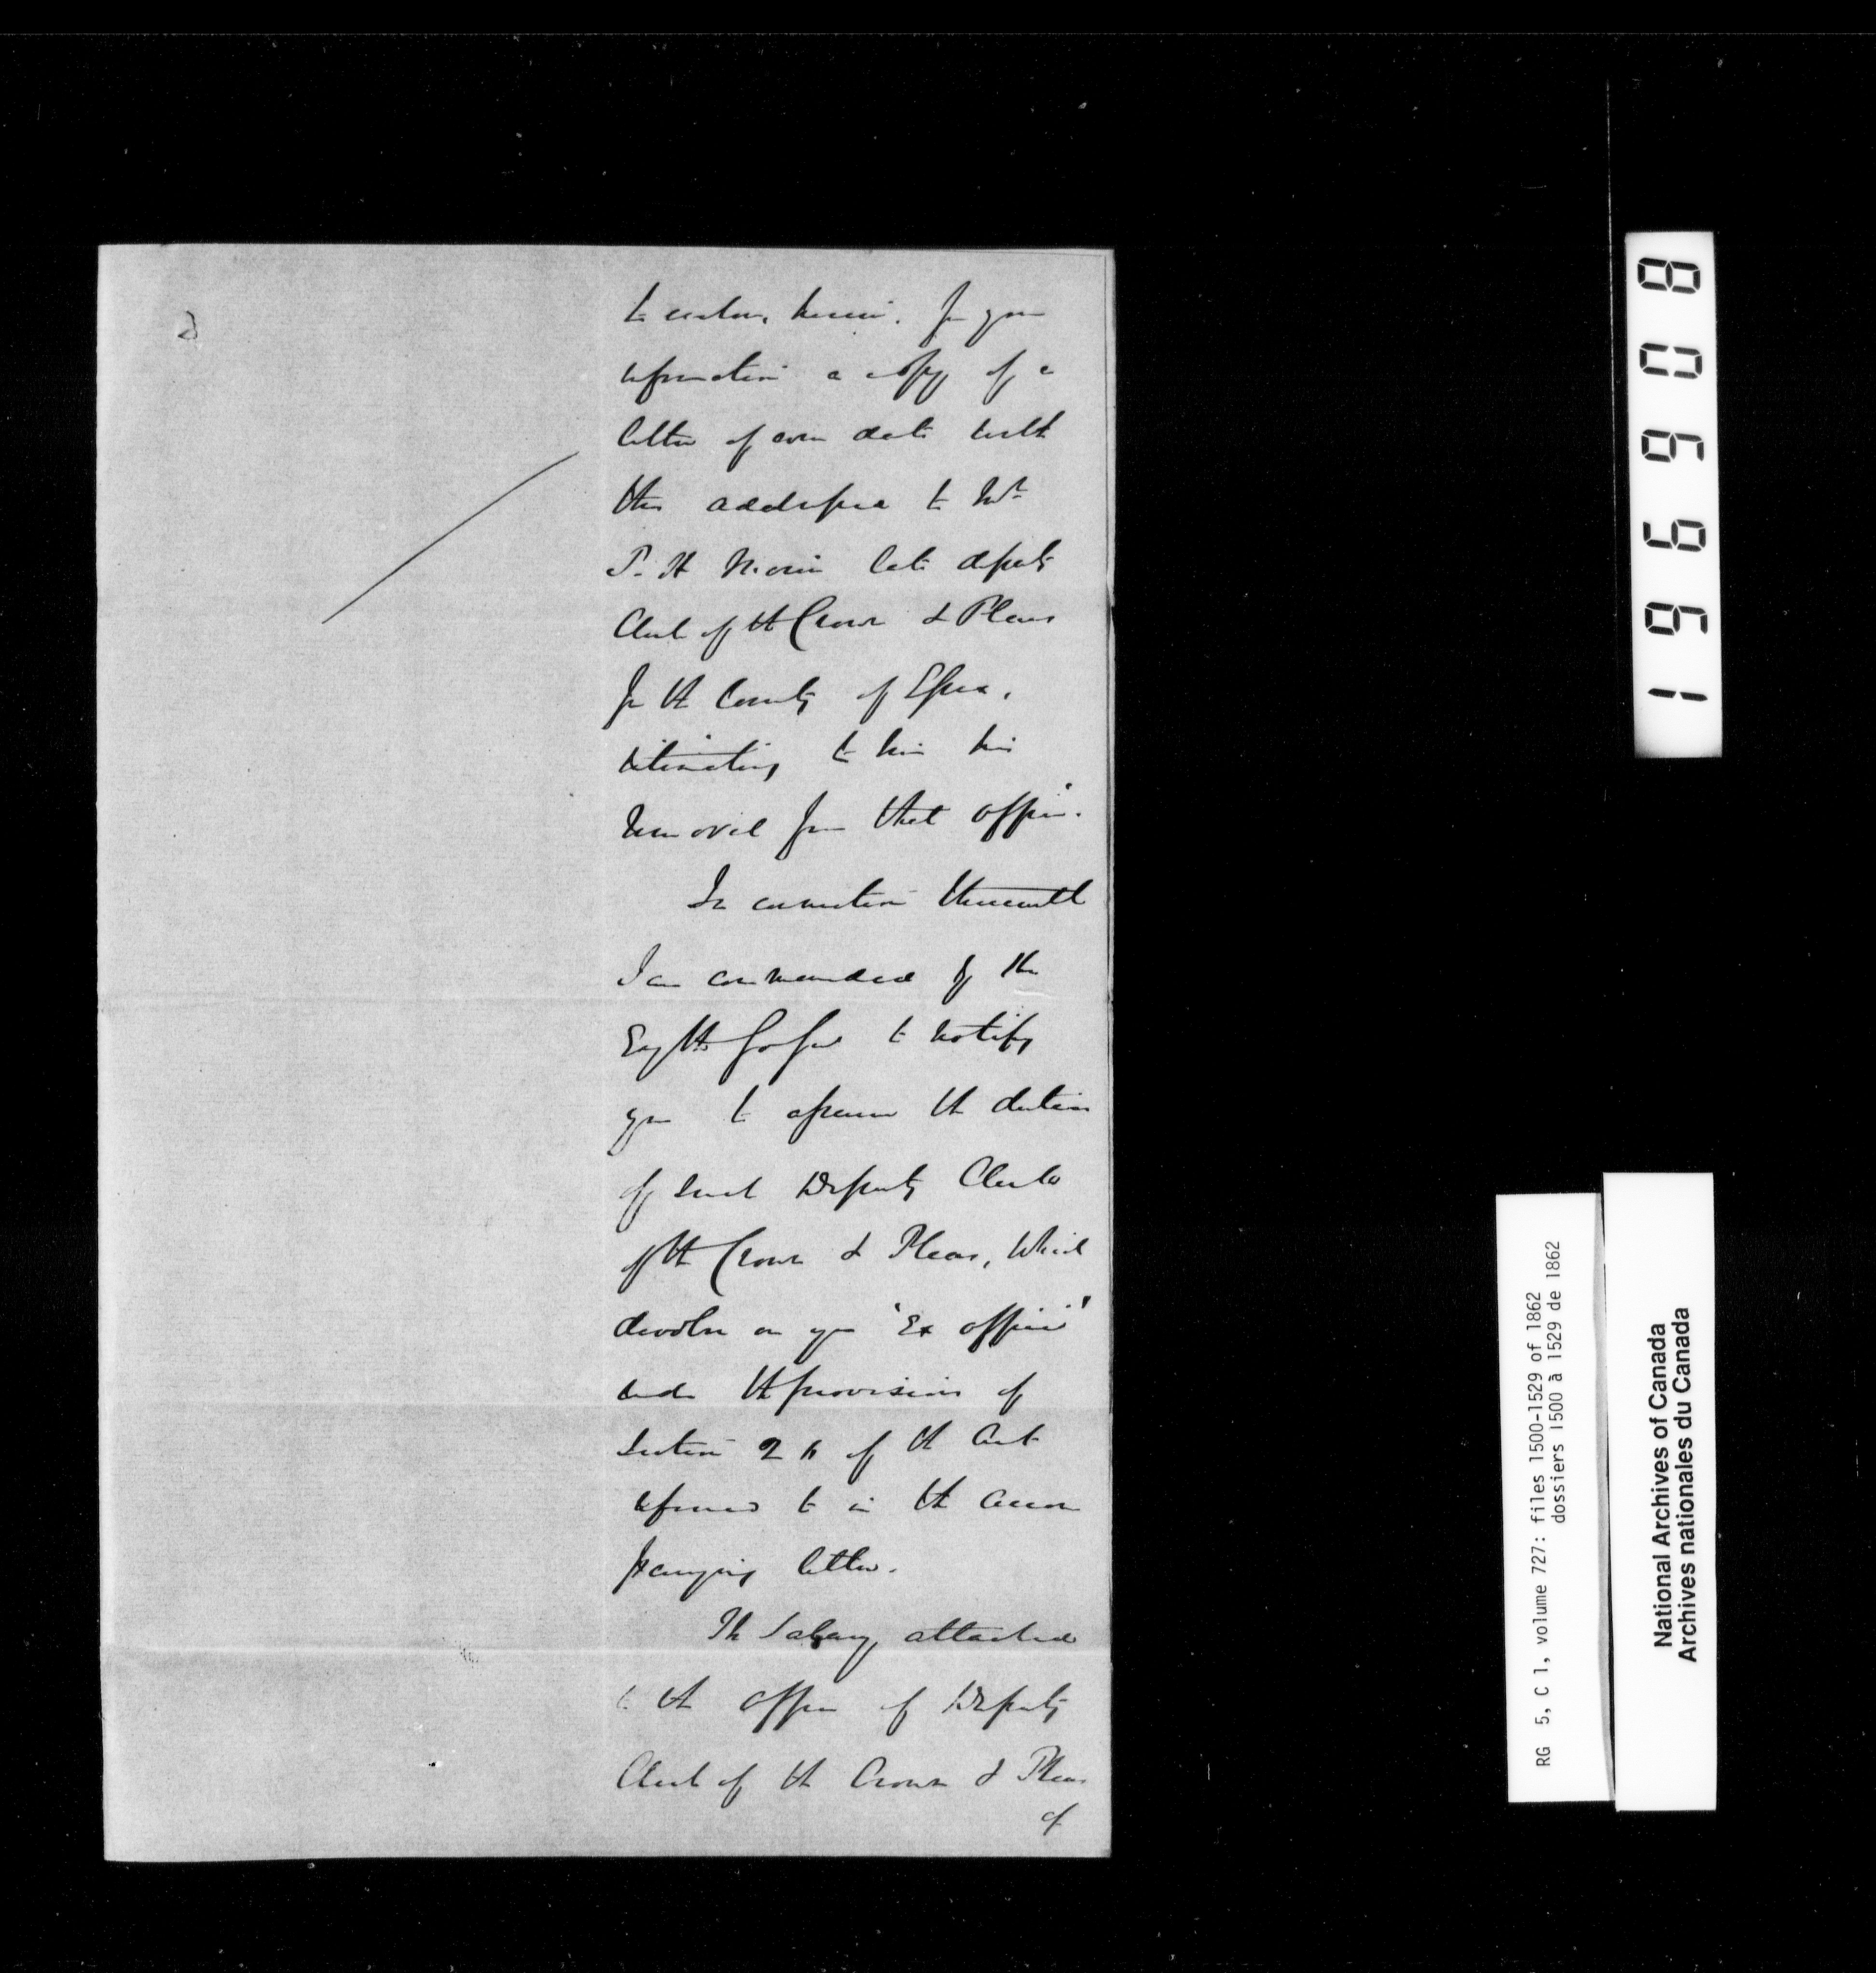 to enclose, herein, for your
information a copy of a
letter of even date with
this addressed to Mr
P. H. Morin late deputy
Clerk of the Crown & Pleas
for the County of Essex,
intimating to him his
removal from that office.
In connection therewith
I am commanded by His
Excy the Gov Genl to notify
you to assume the duties
of such Deputy Clerk
of the Crown & Pleas, which
devolve on you "Ex officio"
under the provisions of
Section of the Act
referred to in the accom
panying letter.
The Salary attached
to the office of Deputy
Clerk of the Crown & Pleas
of
196908
RG 5, C 1, volume 727: files 1500-1529 of 1862
dossiers 1500 à 1529 de 1862
National Archives of Canada
Archives nationales du Canada